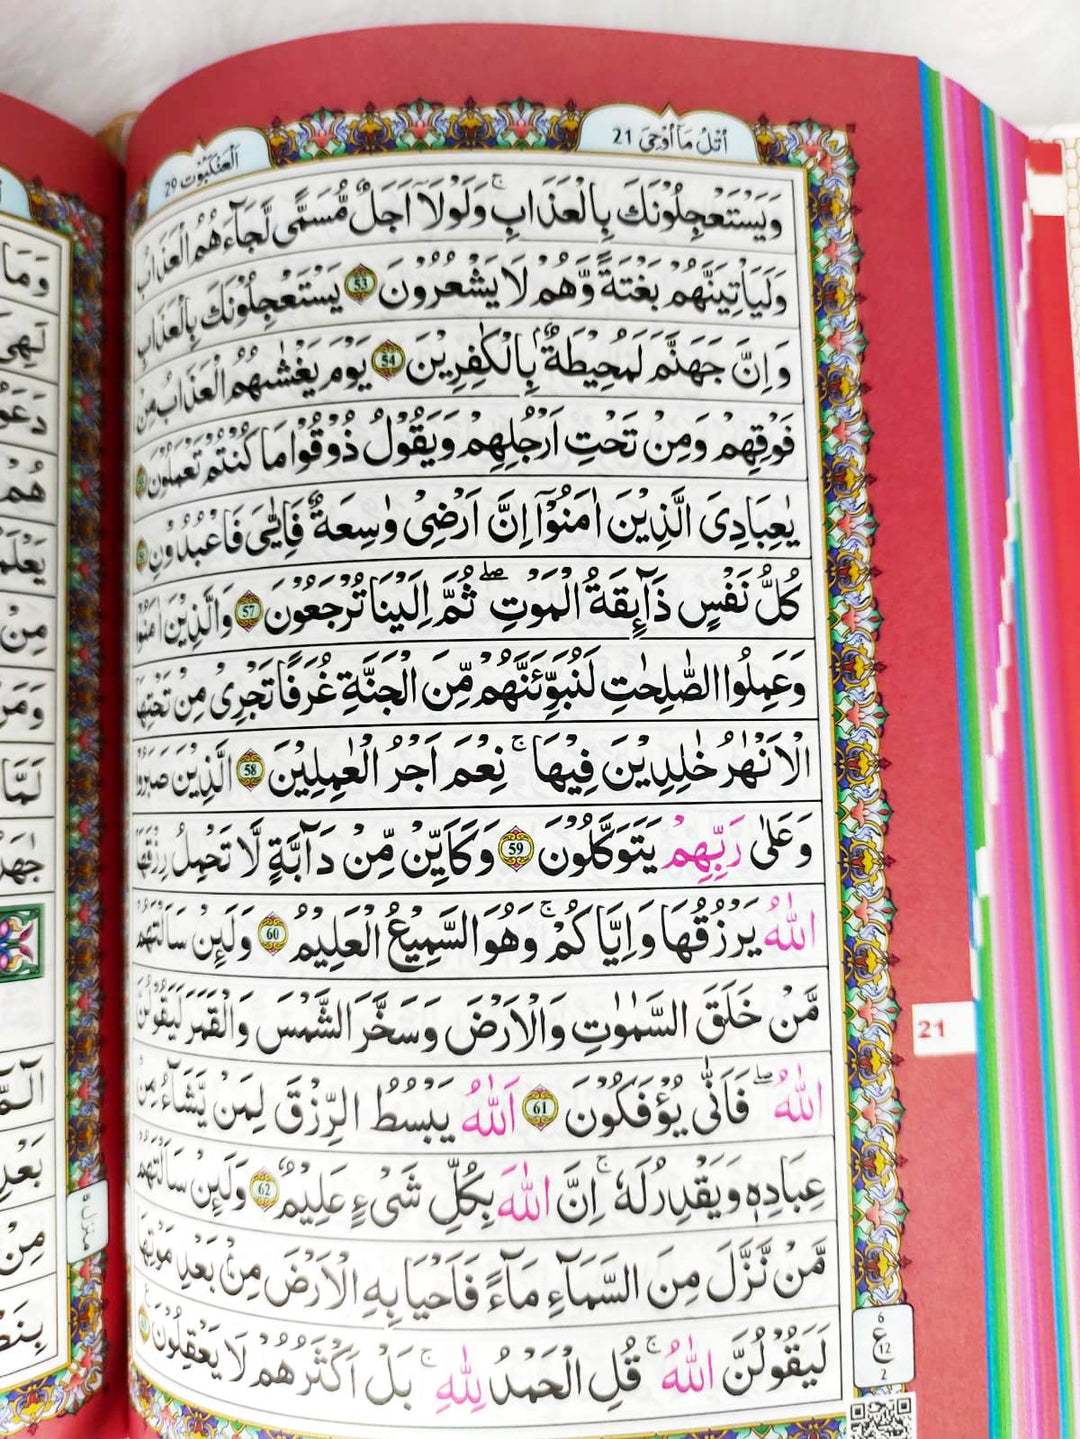 اُتْلُ مَاۤ اُوْحِیَ 21
اَلْعَنْكَبُوْت 29
وَیَسْتَعْجِلُوْنَكَ بِالْعَذَابِ ۚ وَلَوْلَاۤ اَجَلٌ مُّسَمًّی لَّجَآءَهُمُ الْعَذَابُ
وَلَیَاْتِیَنَّهُمْ بَغْتَةً وَّهُمْ لَا یَشْعُرُوْنَ 53 یَسْتَعْجِلُوْنَكَ بِالْعَذَابِ
وَاِنَّ جَهَنَّمَ لَمُحِیْطَةٌۢ بِالْكٰفِرِیْنَ 54 یَوْمَ یَغْشٰىهُمُ الْعَذَابُ مِنْ
فَوْقِهِمْ وَمِنْ تَحْتِ اَرْجُلِهِمْ وَیَقُوْلُ ذُوْقُوْا مَا كُنْتُمْ تَعْمَلُوْنَ
یٰعِبَادِیَ الَّذِیْنَ اٰمَنُوْۤا اِنَّ اَرْضِیْ وَاسِعَةٌ فَاِیَّایَ فَاعْبُدُوْنِ
كُلُّ نَفْسٍ ذَآئِقَةُ الْمَوْتِ ۖ ثُمَّ اِلَیْنَا تُرْجَعُوْنَ 57 وَالَّذِیْنَ اٰمَنُوْا
وَعَمِلُوا الصّٰلِحٰتِ لَنُبَوِّئَنَّهُمْ مِّنَ الْجَنَّةِ غُرَفًا تَجْرِیْ مِنْ تَحْتِهَا
الْاَنْهٰرُ خٰلِدِیْنَ فِیْهَا ۚ نِعْمَ اَجْرُ الْعٰمِلِیْنَ 58 الَّذِیْنَ صَبَرُوْا
وَعَلٰی رَبِّهِمْ یَتَوَكَّلُوْنَ 59 وَكَاَیِّنْ مِّنْ دَآبَّةٍ لَّا تَحْمِلُ رِزْقَهَا
اللّٰهُ یَرْزُقُهَا وَاِیَّاكُمْ ۚ وَهُوَ السَّمِیْعُ الْعَلِیْمُ 60 وَلَئِنْ سَاَلْتَهُمْ
مَّنْ خَلَقَ السَّمٰوٰتِ وَالْاَرْضَ وَسَخَّرَ الشَّمْسَ وَالْقَمَرَ لَیَقُوْلُنَّ
اللّٰهُ ۖ فَاَنّٰی یُؤْفَكُوْنَ 61 اَللّٰهُ یَبْسُطُ الرِّزْقَ لِمَنْ یَّشَآءُ مِنْ
عِبَادِهٖ وَیَقْدِرُ لَهٗ ۚ اِنَّ اللّٰهَ بِكُلِّ شَیْءٍ عَلِیْمٌ 62 وَلَئِنْ سَاَلْتَهُمْ
مَّنْ نَّزَّلَ مِنَ السَّمَآءِ مَآءً فَاَحْیَا بِهِ الْاَرْضَ مِنْۢ بَعْدِ مَوْتِهَا
لَیَقُوْلُنَّ اللّٰهُ ۚ قُلِ الْحَمْدُ لِلّٰهِ ۚ بَلْ اَكْثَرُهُمْ لَا یَعْقِلُوْنَ
21
6
ع
12
2